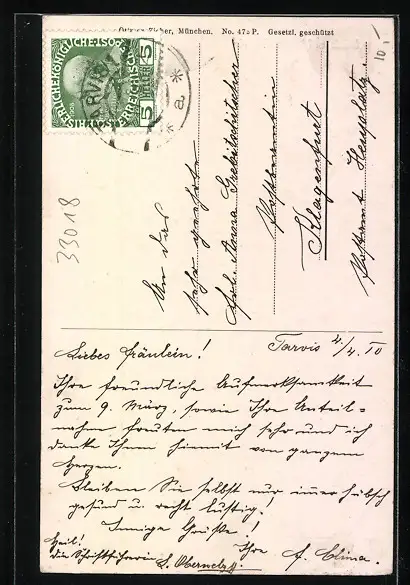 Ottmar Zieher, München. No. 475 P. Gesetzl. geschützt
KAISERLICHEKÖNIGLICHE POST
ÖSTERREICHISCHE
5 HELLER 5
1908
TARVIS
* a *
10,-
33018
An das
sehr geehrte
Frl. Anna
Postbeamtin
Klagenfurt
Postamt Heuplatz.
Tarvis 4./4. 10
Liebes Fräulein!
Ihre freundliche Aufmerksamkeit
zum 9. März, sowie Ihre Anteil=
nahme freuten mich sehr und ich
danke Ihnen hiemit von ganzem
Herzen.
Bleiben Sie selbst nur immer hübsch
gesund u. recht lustig!
Innige Grüße!
Ihre
Heil!
die Schriftführerin